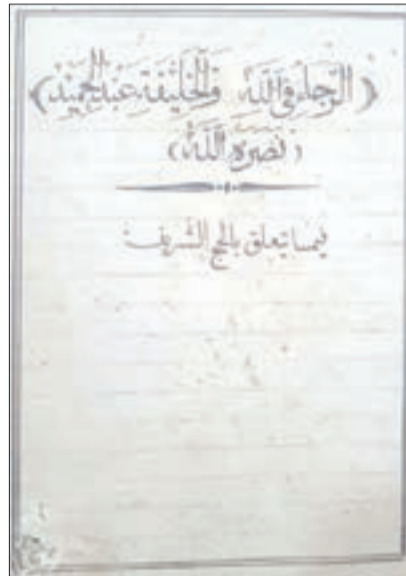 (الرجاء في الله والخليفة عبد الحميد)
(نصره الله)
فيما يتعلق بالحج الشريف